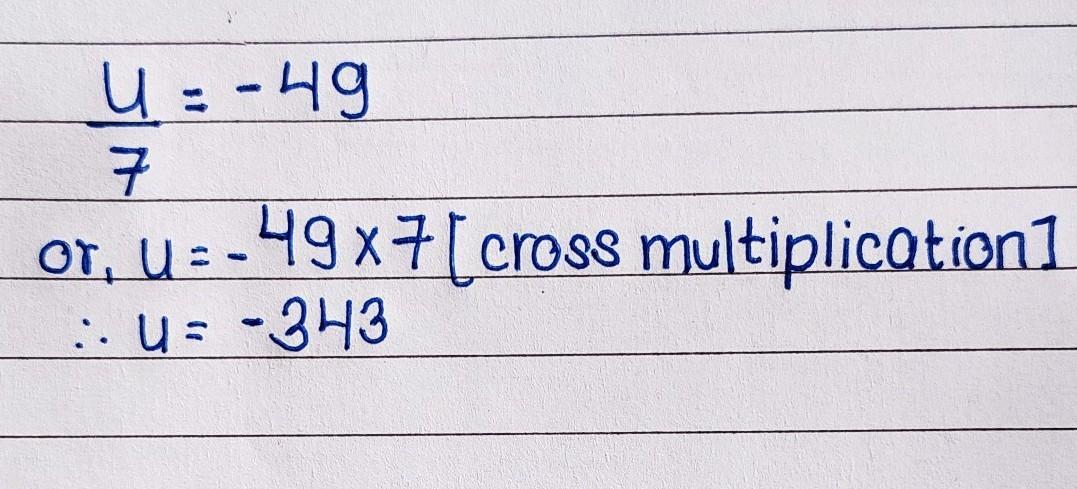 u/7 = -49
or, u = -49 x 7 [cross multiplication]
∴ u = -343